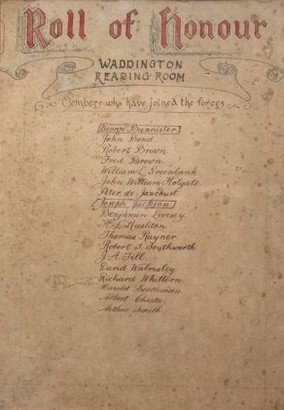 Roll of Honour
WADDINGTON
READING ROOM
Members who have joined the forces
George Bannister
John Bond
Robert Brown
Fred Brown
William Greenbank
John William Holgate
Peter de
Joseph Jackson
Benjamin Livesey
H. Rushton
Thomas Rayner
Robert J. Southworth
J. A. Till
David Walmsley
Richard Whittern
Harold Boothman
Albert
Arthur Smith